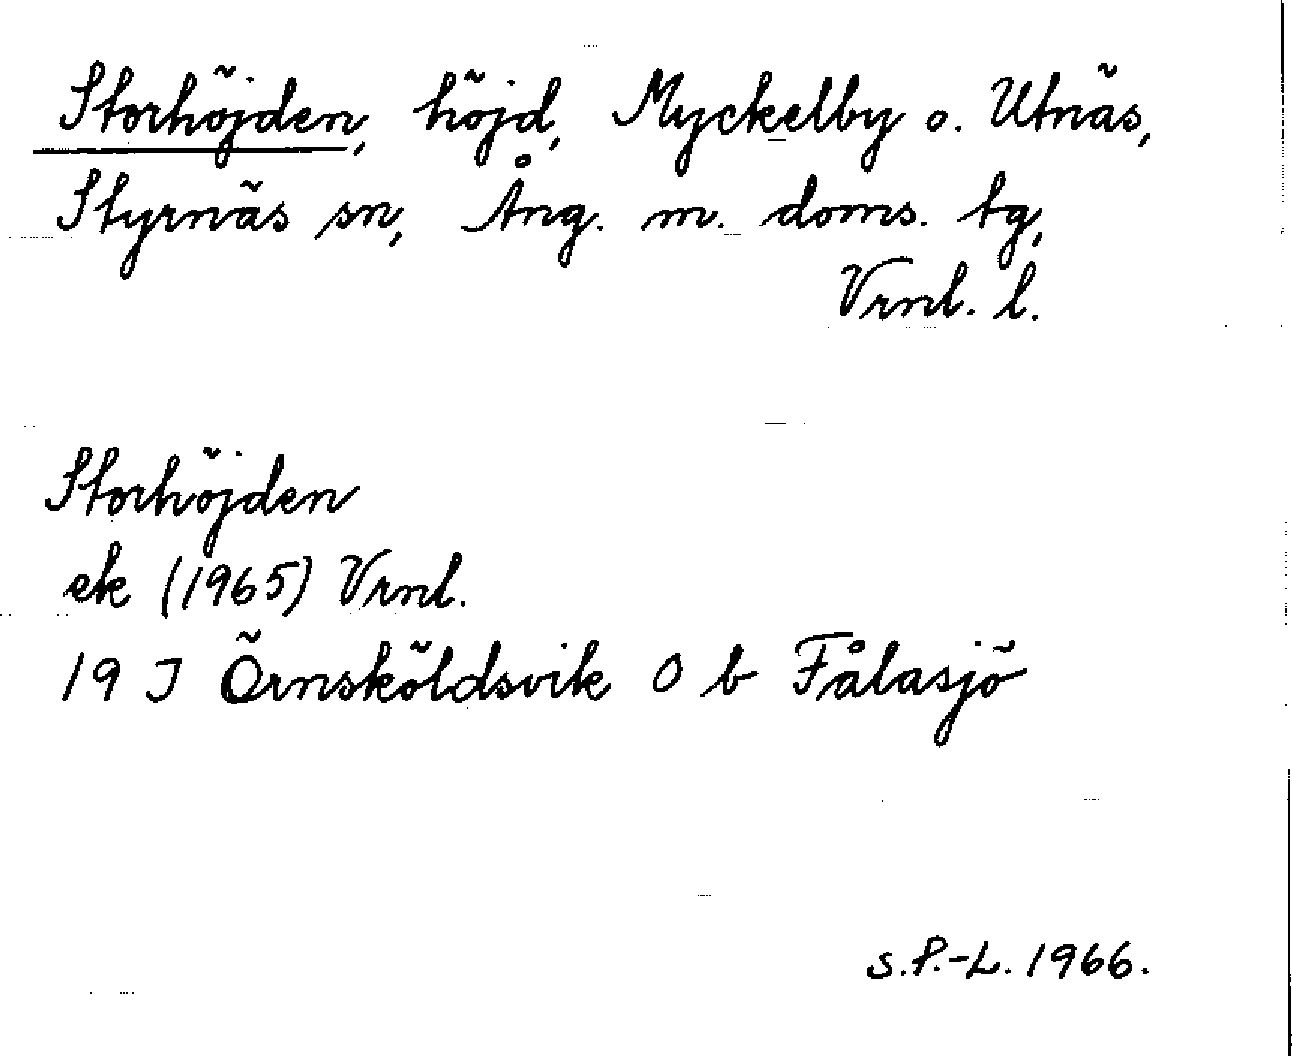 Storhöjden, höjd, Myckelby o. Utnäs,
Styrnäs sn, Ång. m. doms. tg,
Vrnl. l.
Storhöjden
ek (1965) Vrnl.
19 J Örnsköldsvik 0 b Fålasjö
S.P.-L. 1966.